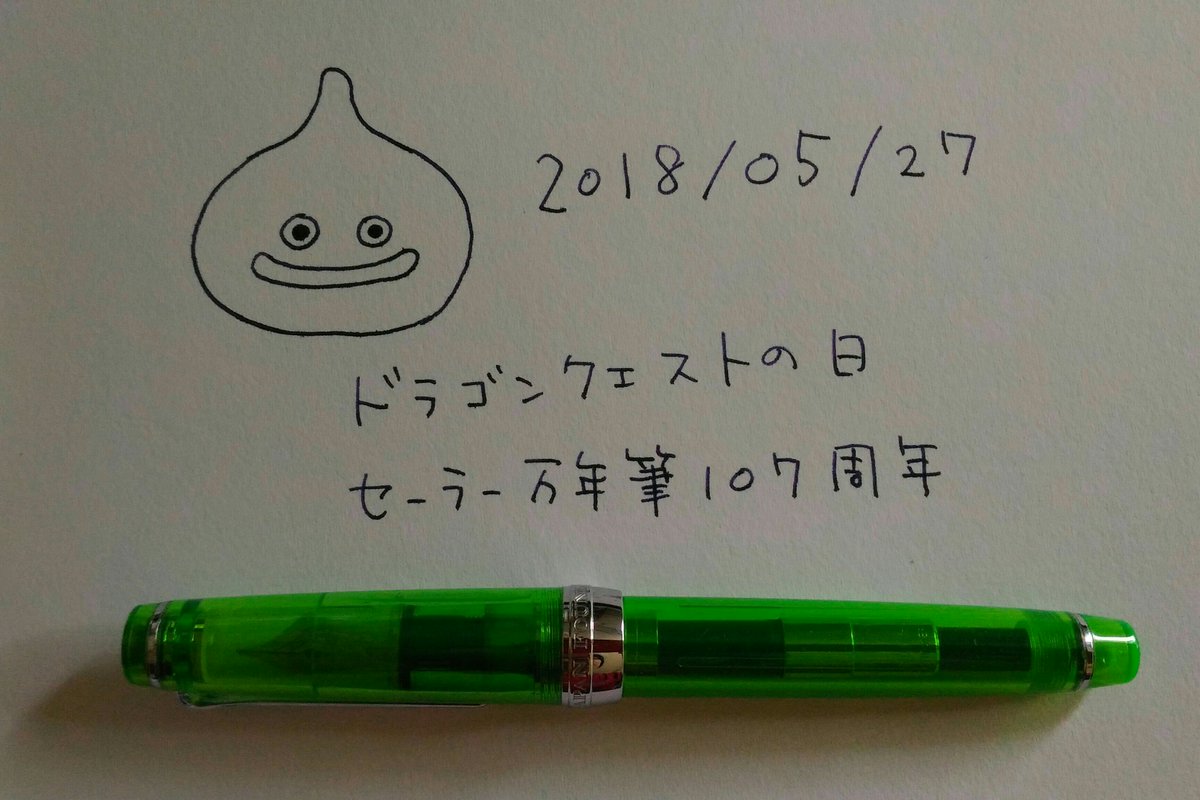 2018/05/27
ドラゴンクエストの日
セーラー万年筆107周年